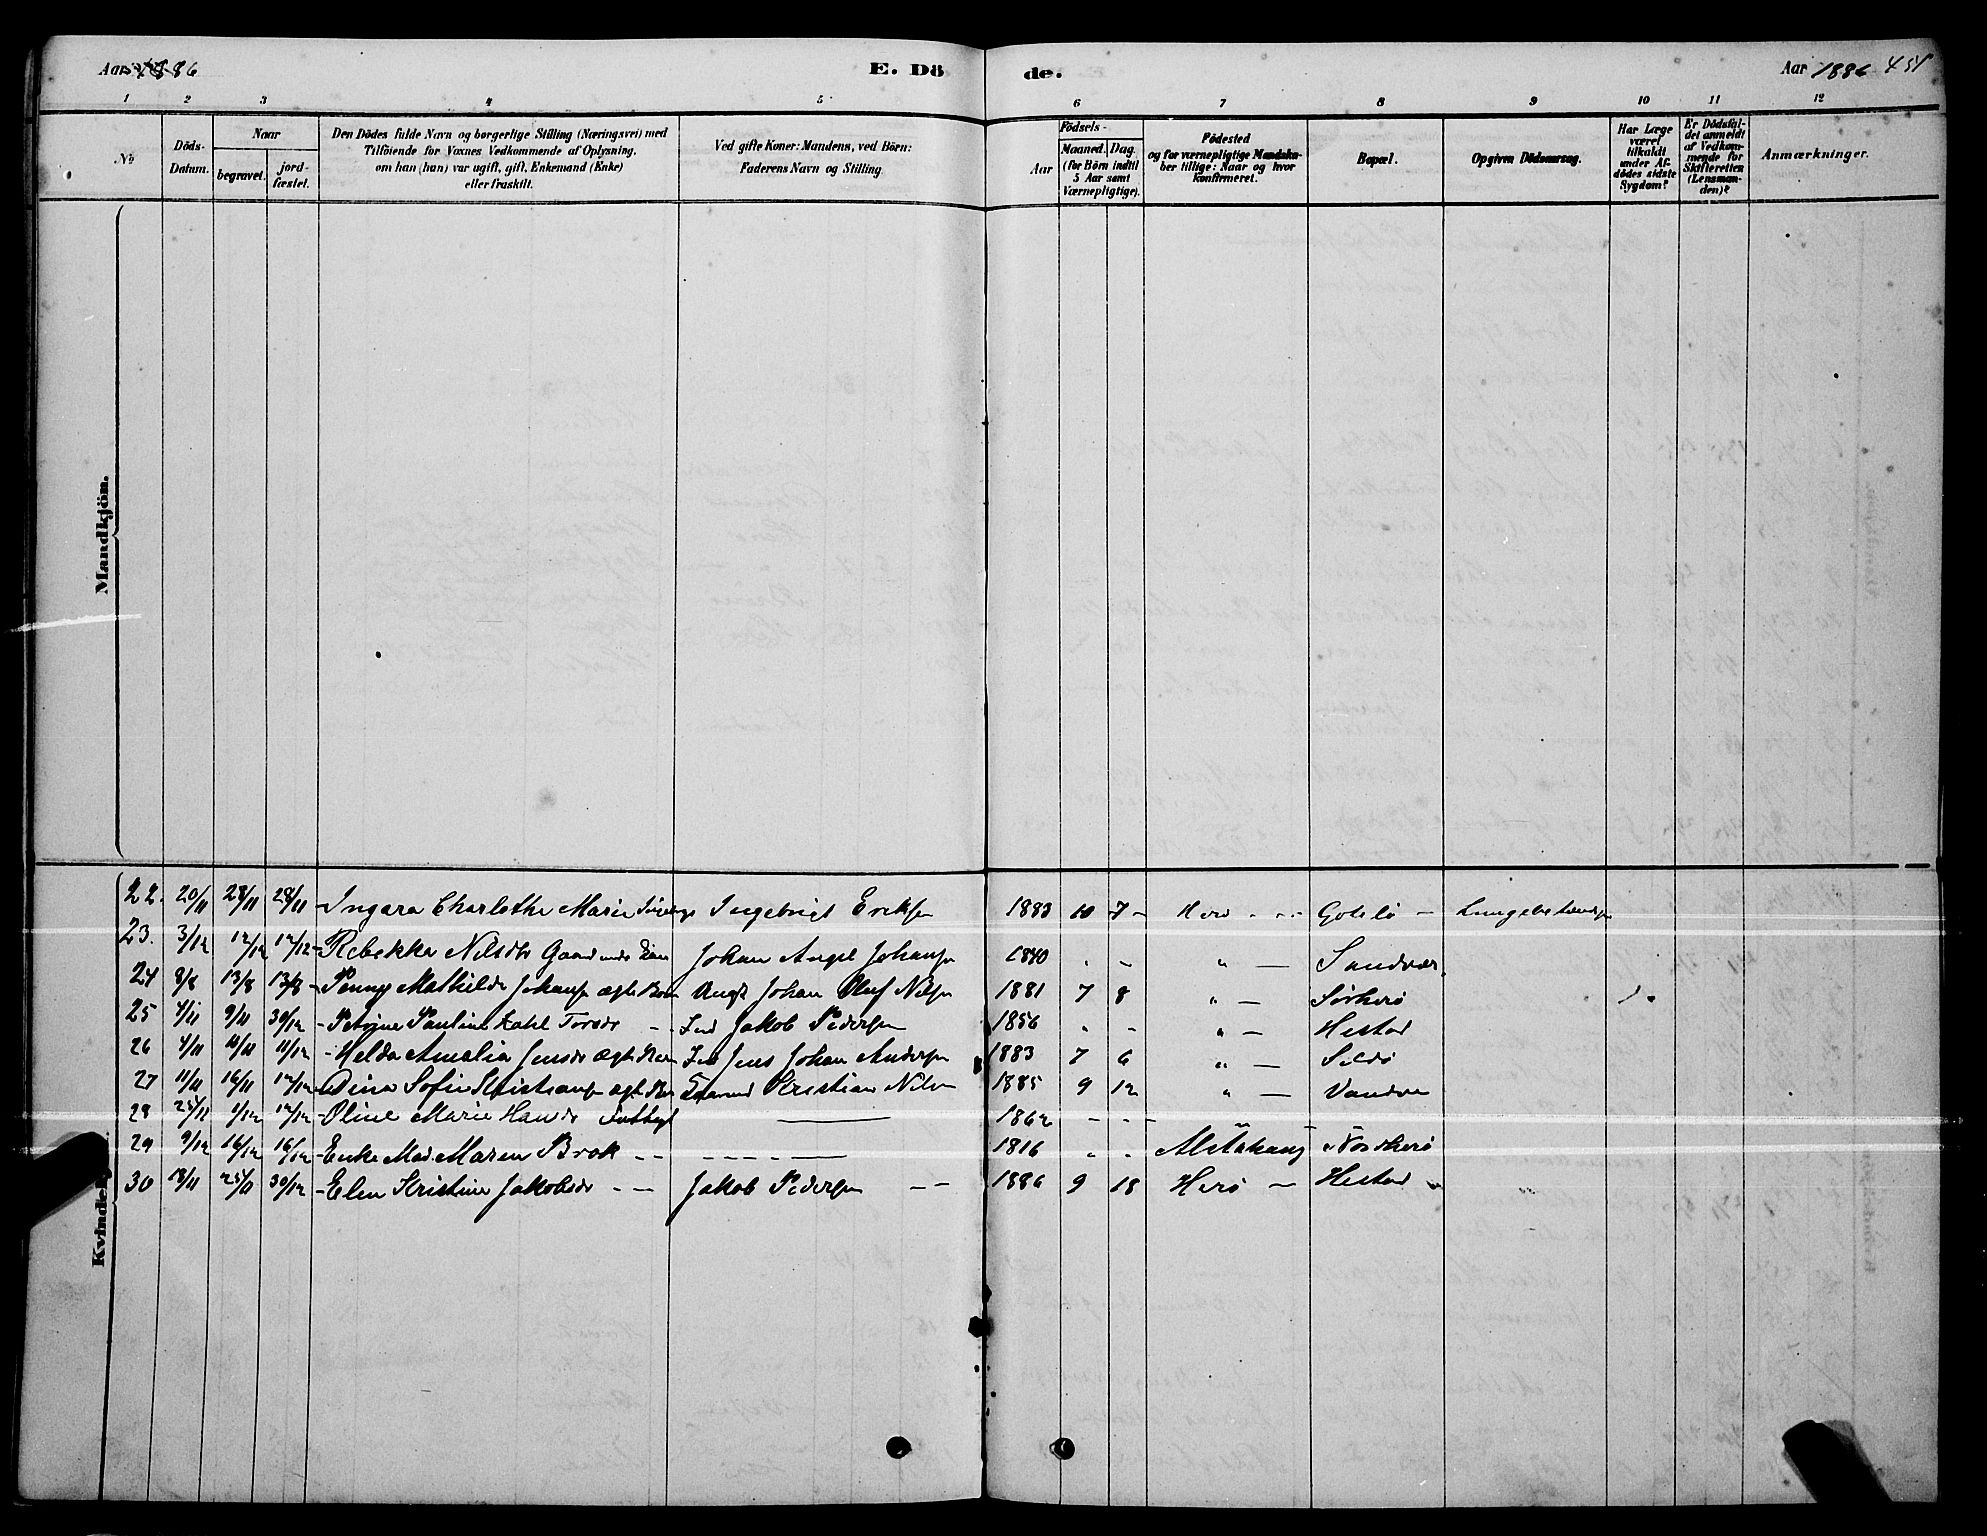 Aar 1886
E. Dö
de.
Aar 1886 451
1 2 3 4 5 6 7 8 9 10 11 12
No
Döds-Datum.
Naar
begravet.
jord-fæstet.
Den Dödes fulde Navn og borgerlige Stilling (Næringsvei) med
Tilföiende for Voxnes Vedkommende af Oplysning,
om han (hun) var ugift, gift, Enkemand (Enke)
eller fraskilt.
Ved gifte Koner: Mandens, ved Börn:
Faderens Navn og Stilling
Födsels-
Aar
Maaned. Dag.
(for Börn indtil
5 Aar samt
Værnepligtige).
Födested
og for værnepligtige Mandska-
ber tillige: Naar og hvor
konfirmeret.
Bopæl.
Opgiven Dödsaarsag.
Har Læge
været
tilkaldt
under Af-
dödes sidste
Sygdom?
Er Dödsfal-
det anmeldt
af Vedkom-
mende for
Skifteretten
(Lensman-
den)?
Anmærkninger.
Mandkjön.
Kvindekjön.
22. 20/11 28/11 28/11 Ingara Charlothe Marie Ingebrigt Eriksen 1883 10 7 Herö
23. 3/12 12/12 12/12 Rebekka Nilsdtr Johan Johansen 1840 " Sandvær
24 8/8 13/8 13/8 Mathilde Johansen ægte Barn Johan Oluf Nilsen 1881 7 8 " Sörherö
25 4/11 9/11 30/12 Pauline Jakob Pedersen 1856 " Hestad
26 4/11 10/11 11/12 Helda Amalia Jensdr ægte Barn Jens Johan Andersen 1883 7 6 " Seldö
27 11/11 16/11 12/12 Dina Sofie ægte Barn Kristian Nilsen 1885 9 12 "
28 25/11 1/12 12/12 Oline Marie Hansdr 1862
29 9/12 16/12 16/12 Enke Mad. Maren Brok 1816 Alstahaug Nordherö
30 18/11 25/11 30/12 Elen Kristine Jakobsdr Jakob Pedersen 1886 9 18 Herö Hestad